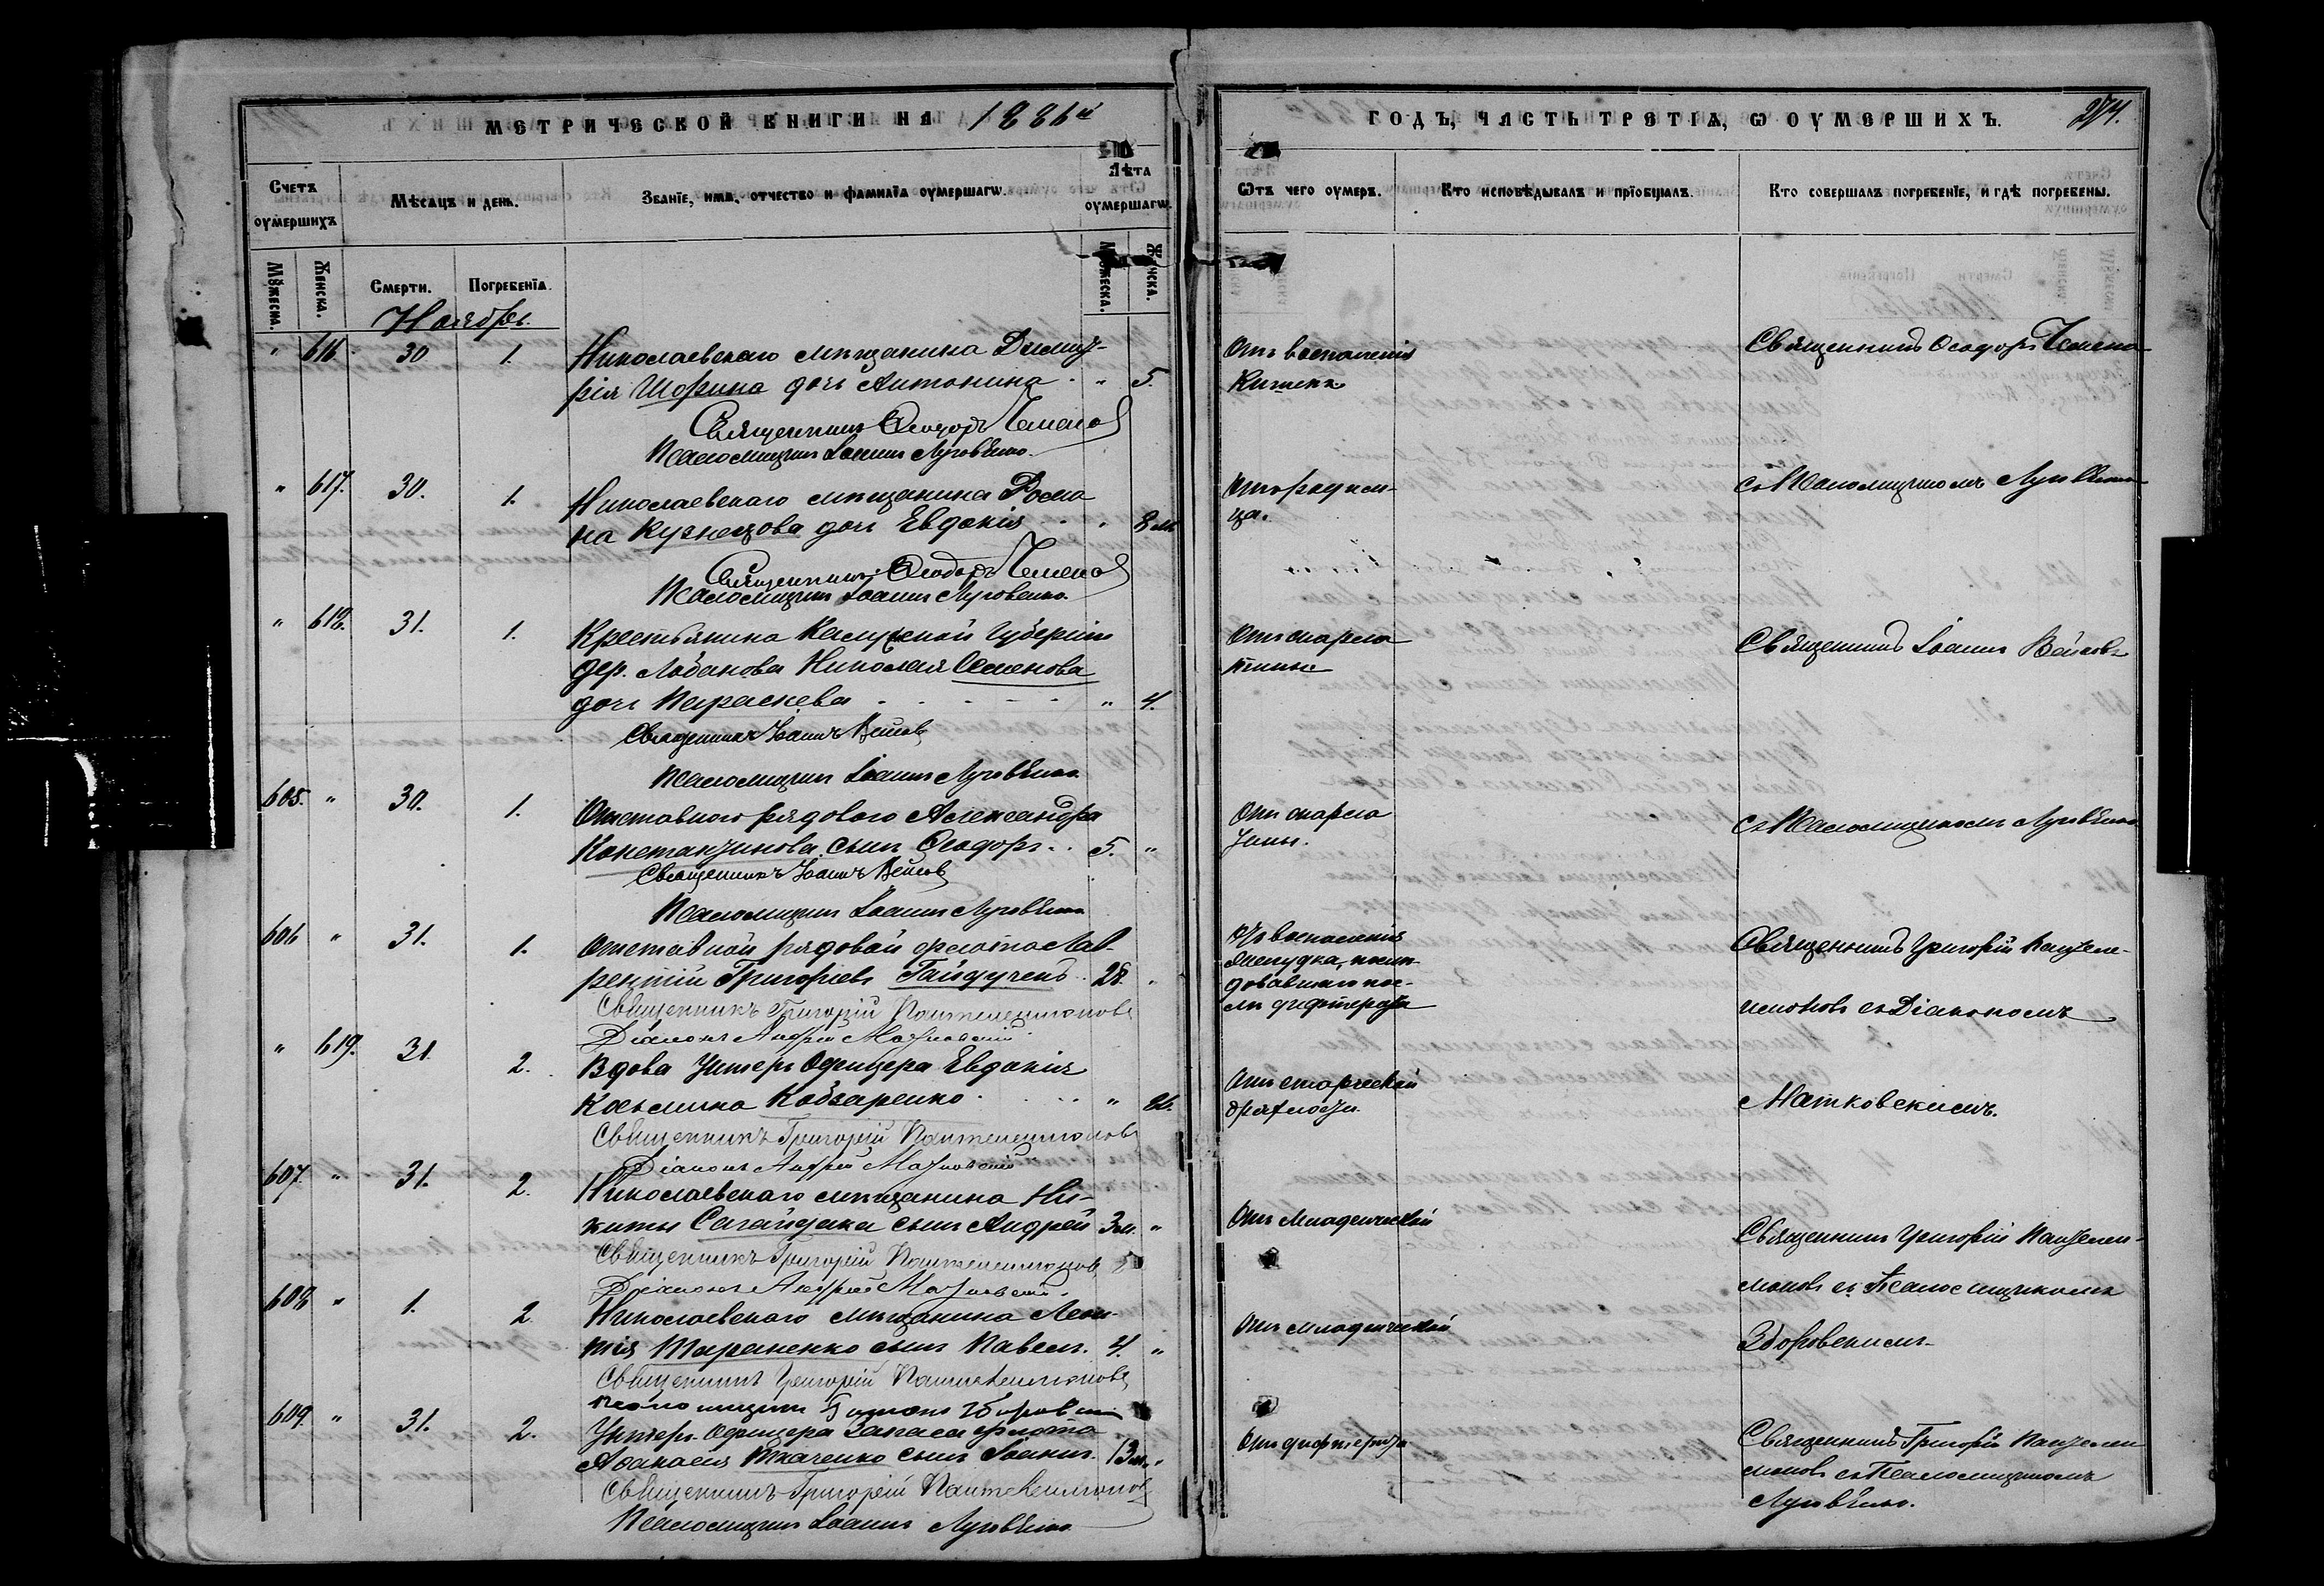 МЕТРИЧЕСКОЙ КНИГИ НА 1886й
ГОДЪ, ЧАСТЬ ТРЕТІѦ, Ѡ ОУМЕРШИХЪ.
274.
Счетъ оумершихъ
Мѣсяцъ и день.
Званіе, имя, отчество и фамилїа оумершагѡ.
Лѣта оумершагѡ.
Ѿтъ чего оумеръ.
Кто исповѣдывалъ и прїобщалъ.
Кто совершалъ погребенїе, и гдѣ погребены.
Мꙋжеска.
Женска.
Смерти.
Погребенїа.
Мꙋжеска.
Женска.
Ноябрь.
" 616 30 1. Николаевскаго мѣщанина Димит-
рія Шорина дочь Антонина " 5.
Отъ воспаленія
Кишекъ
Священникъ Ѳеодоръ
Священникъ Ѳеодоръ
Псаломщикъ Іоаннъ Луговенко.
" 617. 30. 1. Николаевскаго мѣщанина Рома
на Кузнецова дочь Евдокія " 8 м
Отъ родим-
ца.
съ Псаломщикомъ Луговенко
Священникъ Ѳеодоръ
Псаломщикъ Іоаннъ Луговенко.
" 618. 31. 1. Крестьянина Калужской Губерніи
дер. Лобанова Николая Семенова
дочь Параскева " 4.
Отъ скарла
тины
Священникъ Іоаннъ
Священникъ Іоаннъ
Псаломщикъ Іоаннъ Луговенко
605. " 30. 1. Отставного рядового Александра
Константинова сынъ Ѳеодоръ 5. "
Отъ скарла
тины.
съ Псаломщикомъ Луговенко
Священникъ Іоаннъ
Псаломщикъ Іоаннъ Луговенко
606 " 31. 1. Отставной рядовой флота Лав-
рентій Григорьевъ Гайдученъ 28. "
Отъ воспаленія
желудка,
довавшаго пос-
лѣ дифтерита
Священникъ Григорій Пантеле-
имоновъ съ Діакономъ
Священникъ Григорій Пантелеимоновъ
Діаконъ Андрей Матковскій
" 619. 31. 2. Вдова Унтеръ Офицера Евдокія
Косьмина Кобзаренко "
Отъ старческой
дряхлости.
Матковскимъ.
Священникъ Григорій Пантелеимоновъ
Діаконъ Андрей Матковскій
607. " 31. 2. Николаевскаго мѣщанина Ни-
киты Сагайдака сынъ Андрей 3 м. "
Отъ младенческой
Священникъ Григорій Пантелеи-
моновъ съ Псаломщикомъ
Священникъ Григорій Пантелеимоновъ
Діаконъ Андрей Матковскій.
608 " 1. 2. Николаевскаго мѣщанина Леон-
тія Тараненко сынъ Павелъ. 4. "
Отъ младенческой
Зборовскимъ
Священникъ Григорій Пантелеимоновъ
609. " 31. 2. Унтеръ Офицера Запаса флота
Аѳанасія Ткаченко сынъ Іоаннъ. 13 м. "
Отъ дифтерита
Священникъ Григорій Пантелеи
моновъ съ Псаломщикомъ
Луговенко.
Священникъ Григорій Пантелеимоновъ
Псаломщикъ Іоаннъ Луговенко